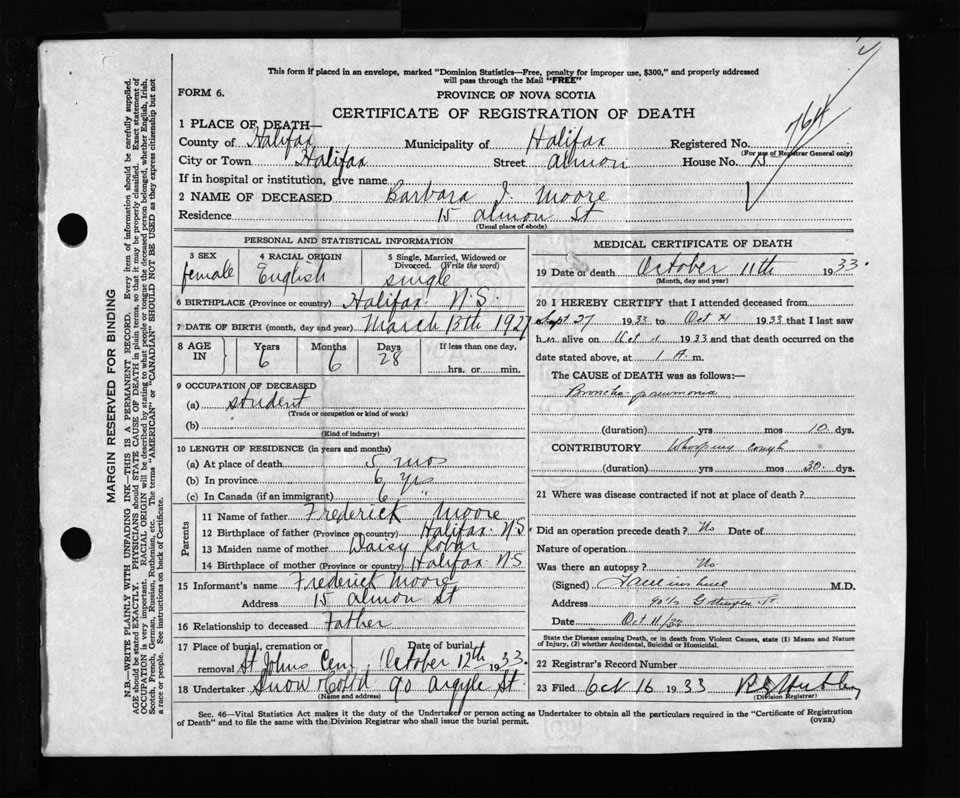 This form if placed in an envelope, marked "Dominion Statistics—Free, penalty for improper use, $300," and properly addressed
will pass through the Mail "FREE"
FORM 6.
PROVINCE OF NOVA SCOTIA
CERTIFICATE OF REGISTRATION OF DEATH
764
1 PLACE OF DEATH—
County of Halifax Municipality of Halifax Registered No.
(For use of Registrar General only)
City or Town Halifax Street Almon House No. 15
If in hospital or institution, give name
2 NAME OF DECEASED Barbara J. Moore
Residence 15 Almon St
(Usual place of abode)
PERSONAL AND STATISTICAL INFORMATION
3 SEX female
4 RACIAL ORIGIN English
5 Single, Married, Widowed or Divorced. (Write the word) single
6 BIRTHPLACE (Province or country) Halifax N.S.
7 DATE OF BIRTH (month, day and year) March 13th 1927
8 AGE IN Years Months Days If less than one day,
6 6 28 hrs. or min.
9 OCCUPATION OF DECEASED
(a) student
(Trade or occupation or kind of work)
(b)
(Kind of industry)
10 LENGTH OF RESIDENCE (in years and months)
(a) At place of death 5 mos
(b) In province 6 yrs
(c) In Canada (if an immigrant) 6 "
Parents
11 Name of father Frederick Moore
12 Birthplace of father (Province or country) Halifax N.S.
13 Maiden name of mother Daisy
14 Birthplace of mother (Province or country) Halifax N.S
15 Informant's name Frederick Moore
Address 15 Almon St
16 Relationship to deceased Father
17 Place of burial, cremation or removal Date of burial
St Johns Cem. October 12th 1933.
18 Undertaker Snow & Co Ltd 90 Argyle St.
(Name and address)
MEDICAL CERTIFICATE OF DEATH
19 Date of death October 11th 1933.
(Month, day and year)
20 I HEREBY CERTIFY that I attended deceased from
Sept 27 1933 to Oct 1933 that I last saw
her alive on Oct 1933 and that death occurred on the
date stated above, at 1 A. m.
The CAUSE of DEATH was as follows:—
Broncho-pneumonia
(duration) yrs mos 10 dys.
CONTRIBUTORY Whooping cough
(duration) yrs mos 30 dys.
21 Where was disease contracted if not at place of death?
Did an operation precede death? No Date of
Nature of operation
Was there an autopsy? No
(Signed) M.D.
Address
Date Oct 11/33
State the Disease causing Death, or in death from Violent Causes, state (1) Means and Nature
of Injury, (2) whether Accidental, Suicidal or Homicidal.
22 Registrar's Record Number
23 Filed Oct 16 1933
(Division Registrar)
Sec. 46—Vital Statistics Act makes it the duty of the Undertaker or person acting as Undertaker to obtain all the particulars required in the "Certificate of Registration
of Death" and to file the same with the Division Registrar who shall issue the burial permit.
(OVER)
MARGIN RESERVED FOR BINDING
N.B.—WRITE PLAINLY WITH UNFADING INK—THIS IS A PERMANENT RECORD. Every item of information should be carefully supplied.
AGE should be stated EXACTLY. PHYSICIANS should STATE CAUSE OF DEATH in plain terms, so that it may be properly classified. Exact statement of
OCCUPATION is very important. RACIAL ORIGIN will be described by stating to what people or tongue the deceased person belonged, whether English, Irish,
Scotch, French, German, Russian, Ruthenian, etc. The terms "AMERICAN" or "CANADIAN" SHOULD NOT BE USED as they express citizenship but not
a race or people. See instructions on back of Certificate.